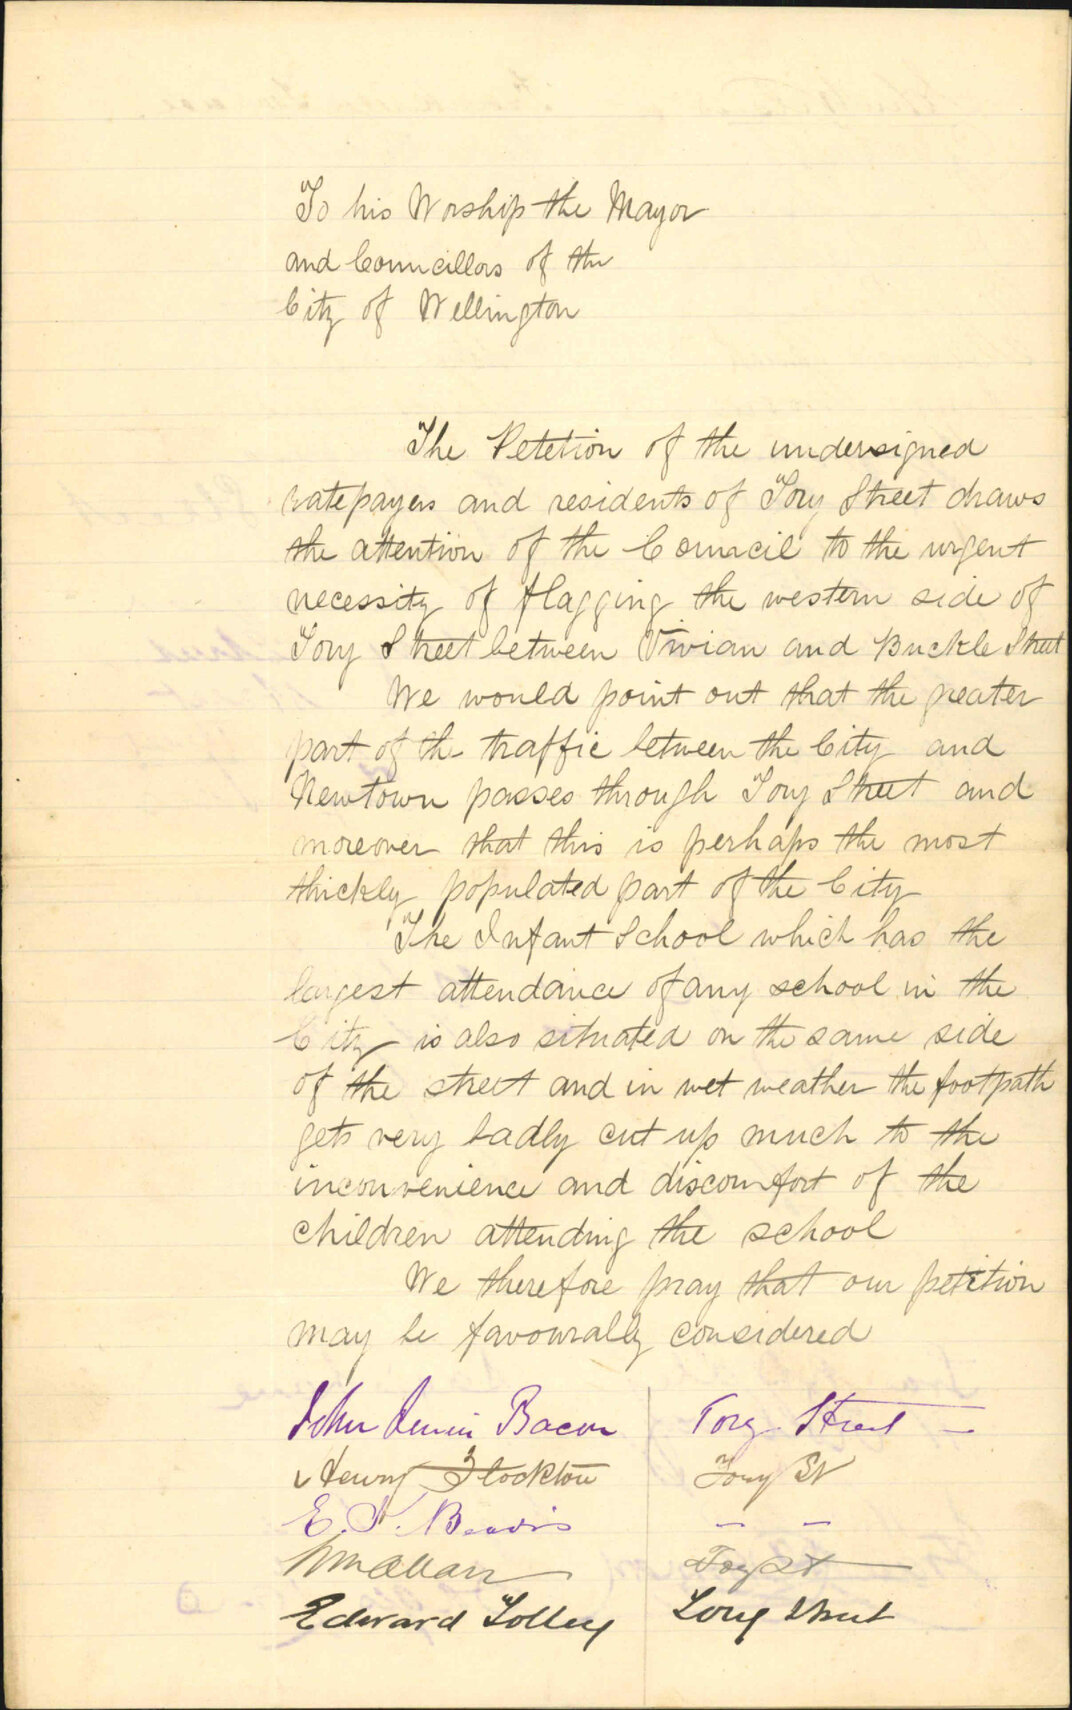 To his Worship the Mayor
and Councillors of the
City of Wellington
The Petetion of the undersigned
ratepayers and residents of Tory Street draws
the attention of the Council to the urgent
necessity of flagging the western side of
Tory Street between Vivian and Buckle Street
We would point out that the greater
part of the traffic between the City and
Newtown passes through Tory Street and
moreover that this is perhaps the most
thickly populated part of the City
The Infant School which has the
largest attendance of any school in the
City is also situated on the same side
of the street and in wet weather the footpath
gets very badly cut up much to the
inconvenience and discomfort of the
children attending the school
We therefore pray that our petition
may be favourably considered
John Bacon Tory Street
Henry Stockton Tory St
E. Beavis — —
Tory St
Edward Tolley Tory Street